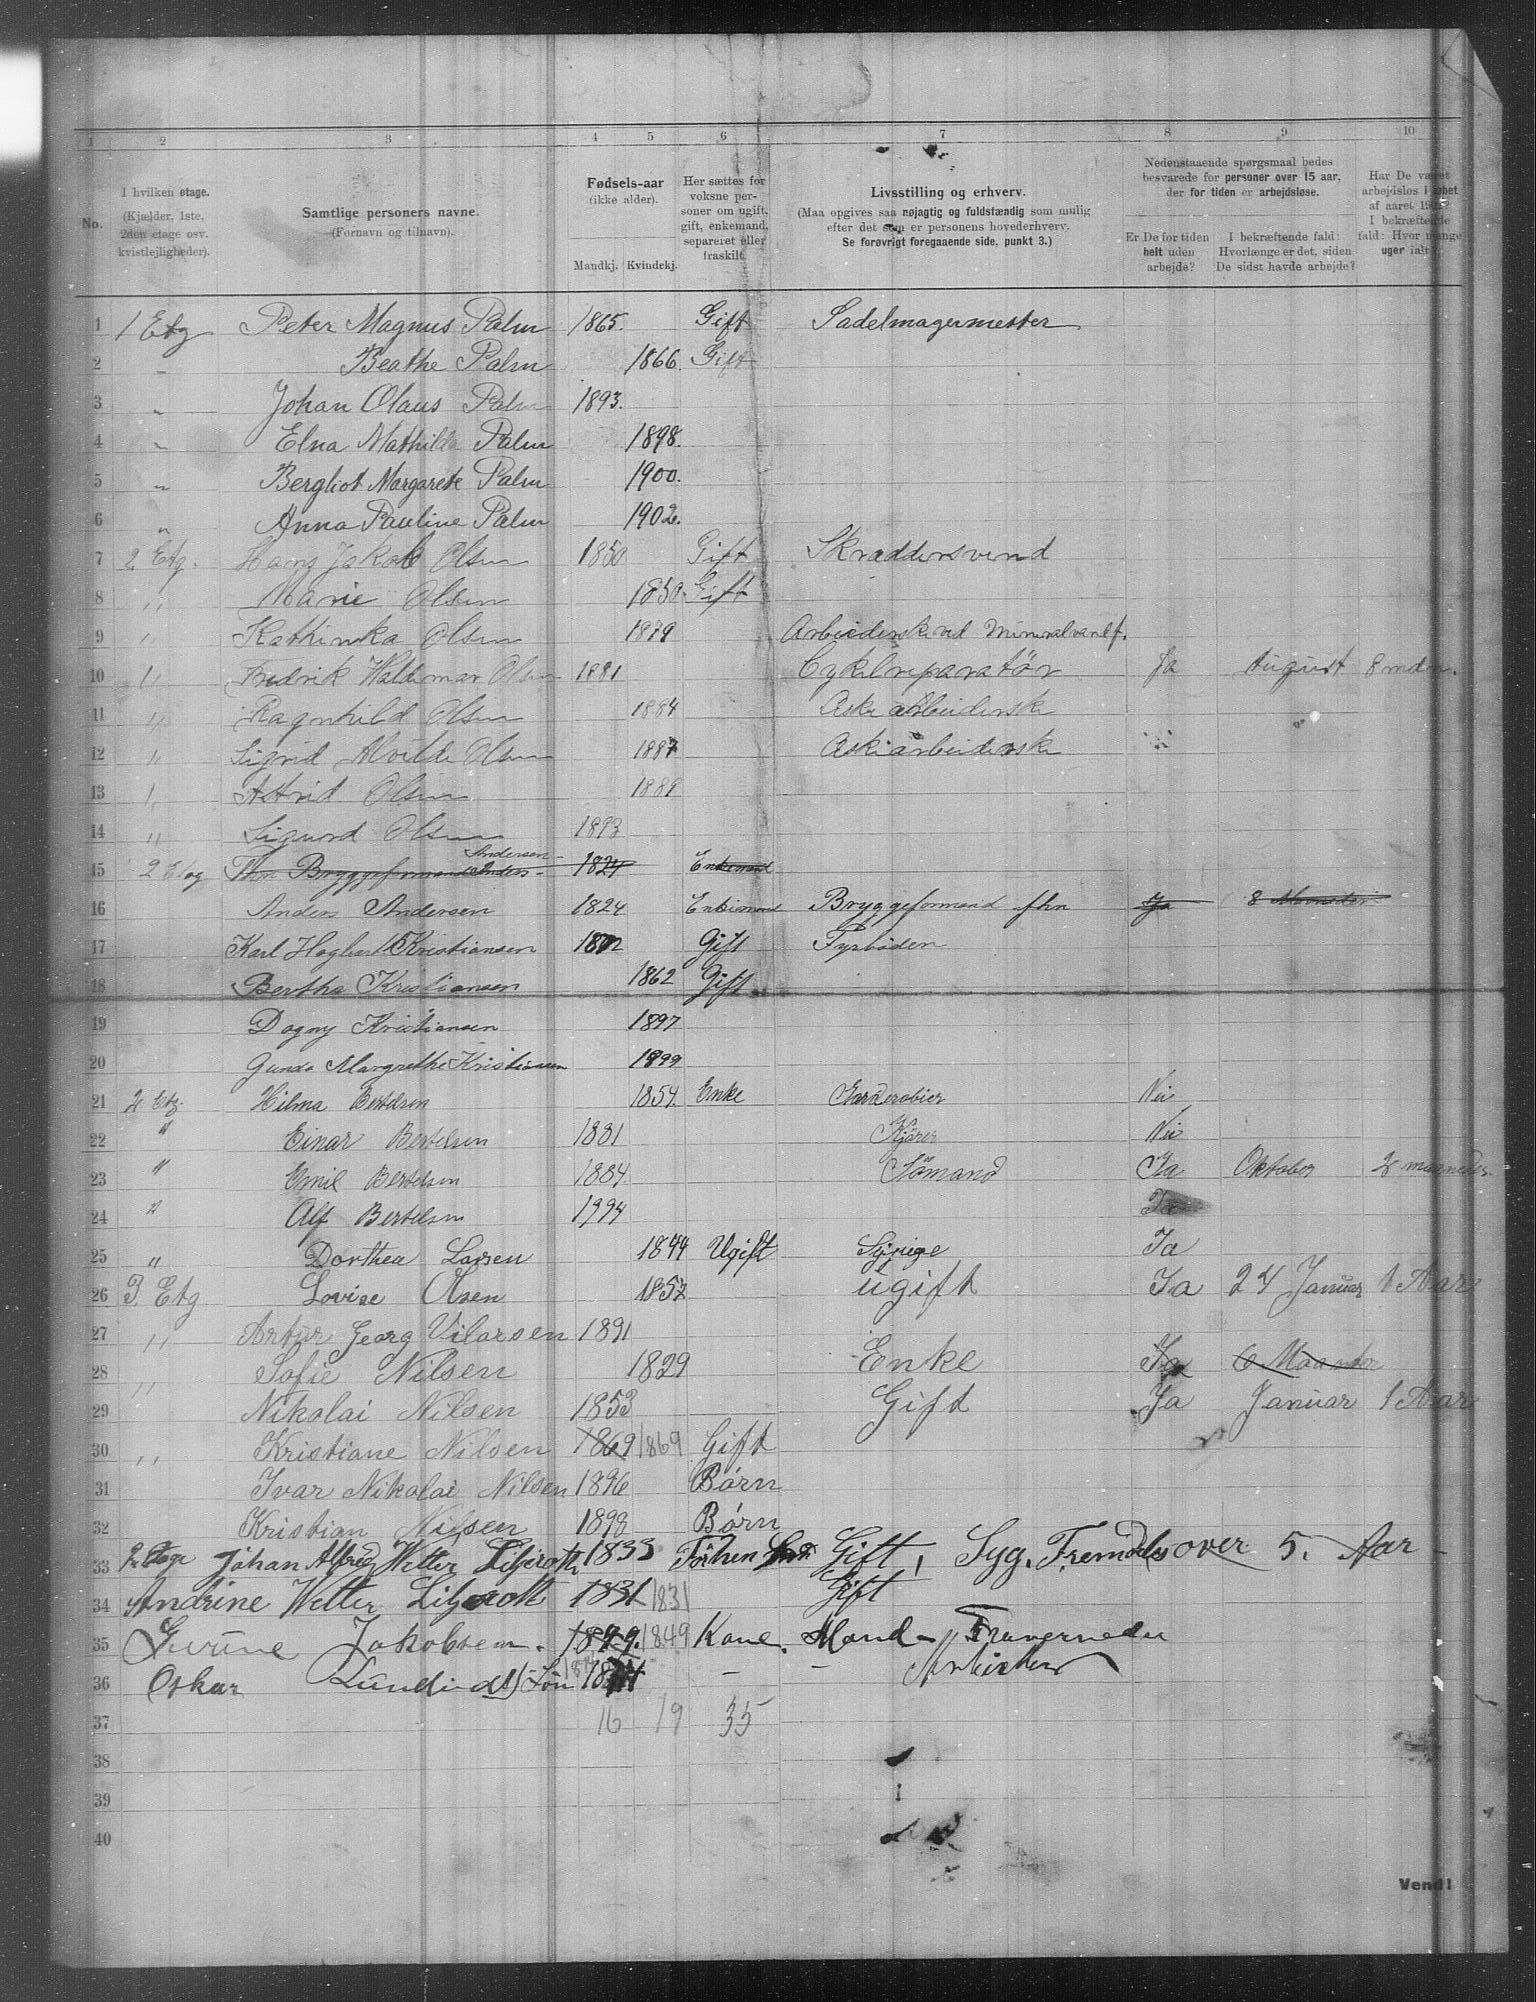 1 2 3 4 5 6 7 8 9 10
No.
I hvilken etage. (Kjælder, 1ste, 2den etage osv. kvistlejligheder).
Samtlige personers navne. (Fornavn og tilnavn).
Fødsels-aar (ikke alder). Mandkj. Kvindekj.
Her sættes for voksne personer om ugift, gift, enkemand, separeret eller fraskilt.
Livsstilling og erhverv. (Maa opgives saa nøjagtig og fuldstændig som mulig efter det som er personens hovederhverv. Se forøvrigt foregaaende side, punkt 3.)
Nedenstaaende spørgsmaal bedes besvarede for personer over 15 aar, der for tiden er arbejdsløse.
Er De for tiden helt uden arbejde?
I bekræftende fald: Hvorlænge er det, siden De sidst havde arbejde?
Har De været arbejdsløs i løbet af aaret I bekræftende fald: Hvor mange uger ialt?
1 1 Etg Peter Magnus Palm 1865. Gift Sadelmagermester
2 " Beathe Palm 1866. Gift
3 " Johan Olaus Palm 1893.
4 " Elna Mathilda Palm 1898.
5 " Bergliot Margarete Palm 1900.
6 " Anna Pauline Palm 1902.
7 2 Etg. Hans Jakob Olsen 1850 Gift Skræddersvend
8 " Marie Olsen 1850. Gift
9 " Kathinka Olsen 1879 Arbeiderske ved Mineralvandf.
10 " Fredrik Waldemar Olsen 1881 Cykelreparatør Ja August 8 mdr.
11 " Ragnhild Olsen 1884 Aske arbeiderske
12 " Sigrid Alvilde Olsen 1887 Askearbeiderske
13 " Astrid Olsen 1889
14 " Sigurd Olsen 1893
15 2 Etag Andersen 1824 Enkemand
16 Anders Andersen 1824 Enkemand Bryggeformand fhn Ja 8 Maaneder
17 Karl Hagbart Kristiansen 1872 Gift Fyrbøder
18 Bertha Kristiansen 1862 Gift
19 Dagny Kristiansen 1897
20 Gunda Margrethe Kristiansen 1899
21 2 Etg. Hilma Bertelsen 1854. Enke Garderobier Nei
22 " Einar Bertelsen 1881 Kjører Nei
23 " Emil Bertelsen 1884. Sømand Ja Oktober 2 maaneder.
24 " Alf Bertelsen 1994 Ja
25 " Dorthea Larsen 1844 Ugift Syrige Ja
26 3. Etg Lovise Olsen 1857 ugift Ja 24 Januar 1 Aar
27 " Artur Georg Vilarsen 1891
28 " Sofie Nilsen 1829 Enke Ja 6 Maander
29 Nikolai Nilsen 1853 Gift Ja Januar 1 Aar
30 " Kristiane Nilsen 1869 1869 Gift
31 Ivar Nikolai Nilsen 1896 Børn
32 Kristian Nilsen 1898 Børn
33 2 Etage Johan Alfred Wetter Liljeroth 1833 Gift, Syg. Fremdeles over 5. Aar
34 Andrine Wetter Liljeroth 1831 1831 Gift
35 Jakobsen. 1849. 1849 Kone. Mand
36 Oskar Søn - -
37 16 19 35
38
39
40
Vend!